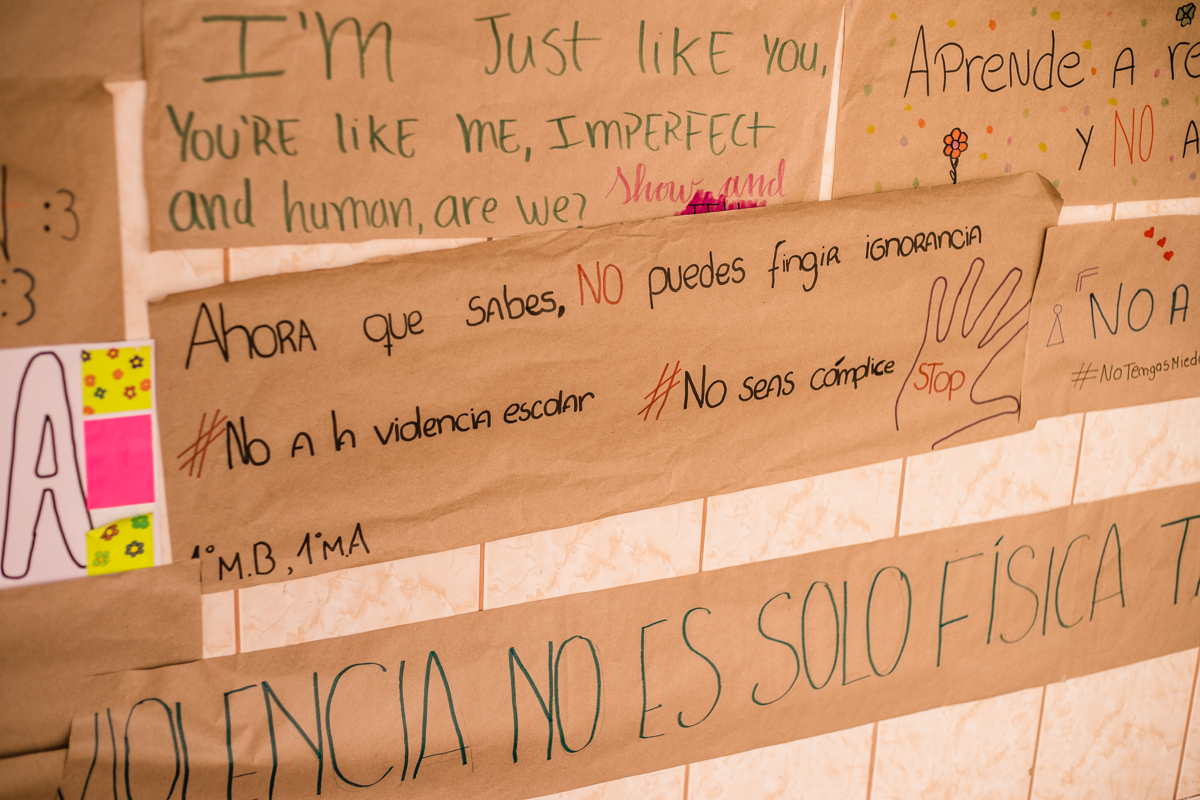 I'm Just like you,
You're like me, Imperfect
and human, are we?
show and
Aprende a
y NO
:3
:3
Ahora que sabes, NO puedes fingir ignorancia
#No a la violencia escolar #No seas cómplice
STOP
1°M.B, 1°M.A
A
NO A
#NoTengasMiedo
VIOLENCIA NO ES SOLO FÍSICA